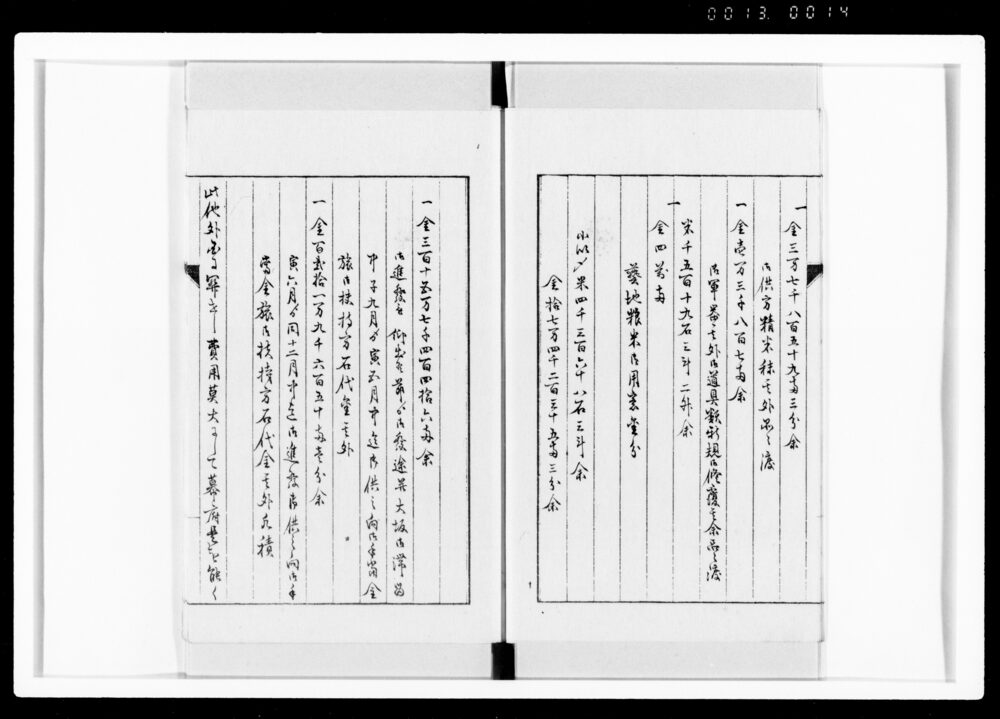 0013. 0014
一金三万七千八百五十九両三分余
御供方精米秣其外品々渡
一金壱万三千八百七両余
御軍器其外御道具類新規御修覆其余品々渡
米千五百十九石三斗二升余
一
金四万両
藝地粮米御用意金分
小以〆米四千三百六十八石三斗余
金拾七万四千二百三十五両三分余
一金三百十五万七千四百四拾六両余
御進発被仰出候節ゟ御発途并大坂御滞留
中子九月ゟ寅五月中迄御供之向御手当金
旅御扶持方石代金其外
一金百弐拾一万九千六百五十両壱分余
寅六月ゟ同十二月中迄御進発御供之向御手
当金旅御扶持方石代金其外凡積
此他外
費用莫大にして幕府
能く